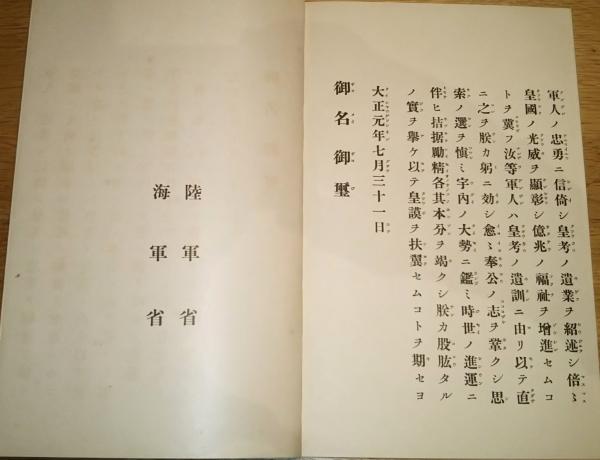 軍人ノ忠勇ニ信倚シ皇考ノ遺業ヲ紹述シ倍〻
皇國ノ光威ヲ顯彰シ億兆ノ福祉ヲ增進セムコ
トヲ冀フ汝等軍人ハ皇考ノ遺訓ニ由リ以テ直
ニ之ヲ朕カ躬ニ效シ愈〻奉公ノ志ヲ鞏クシ思
索ノ選ヲ愼ミ宇內ノ大勢ニ鑑ミ時世ノ進運ニ
伴ヒ拮据勵精各其本分ヲ竭クシ朕カ股肱タル
ノ實ヲ擧ケ以テ皇謨ヲ扶翼セムコトヲ期セヨ
大正元年七月三十一日
御名御璽
陸軍省
海軍省